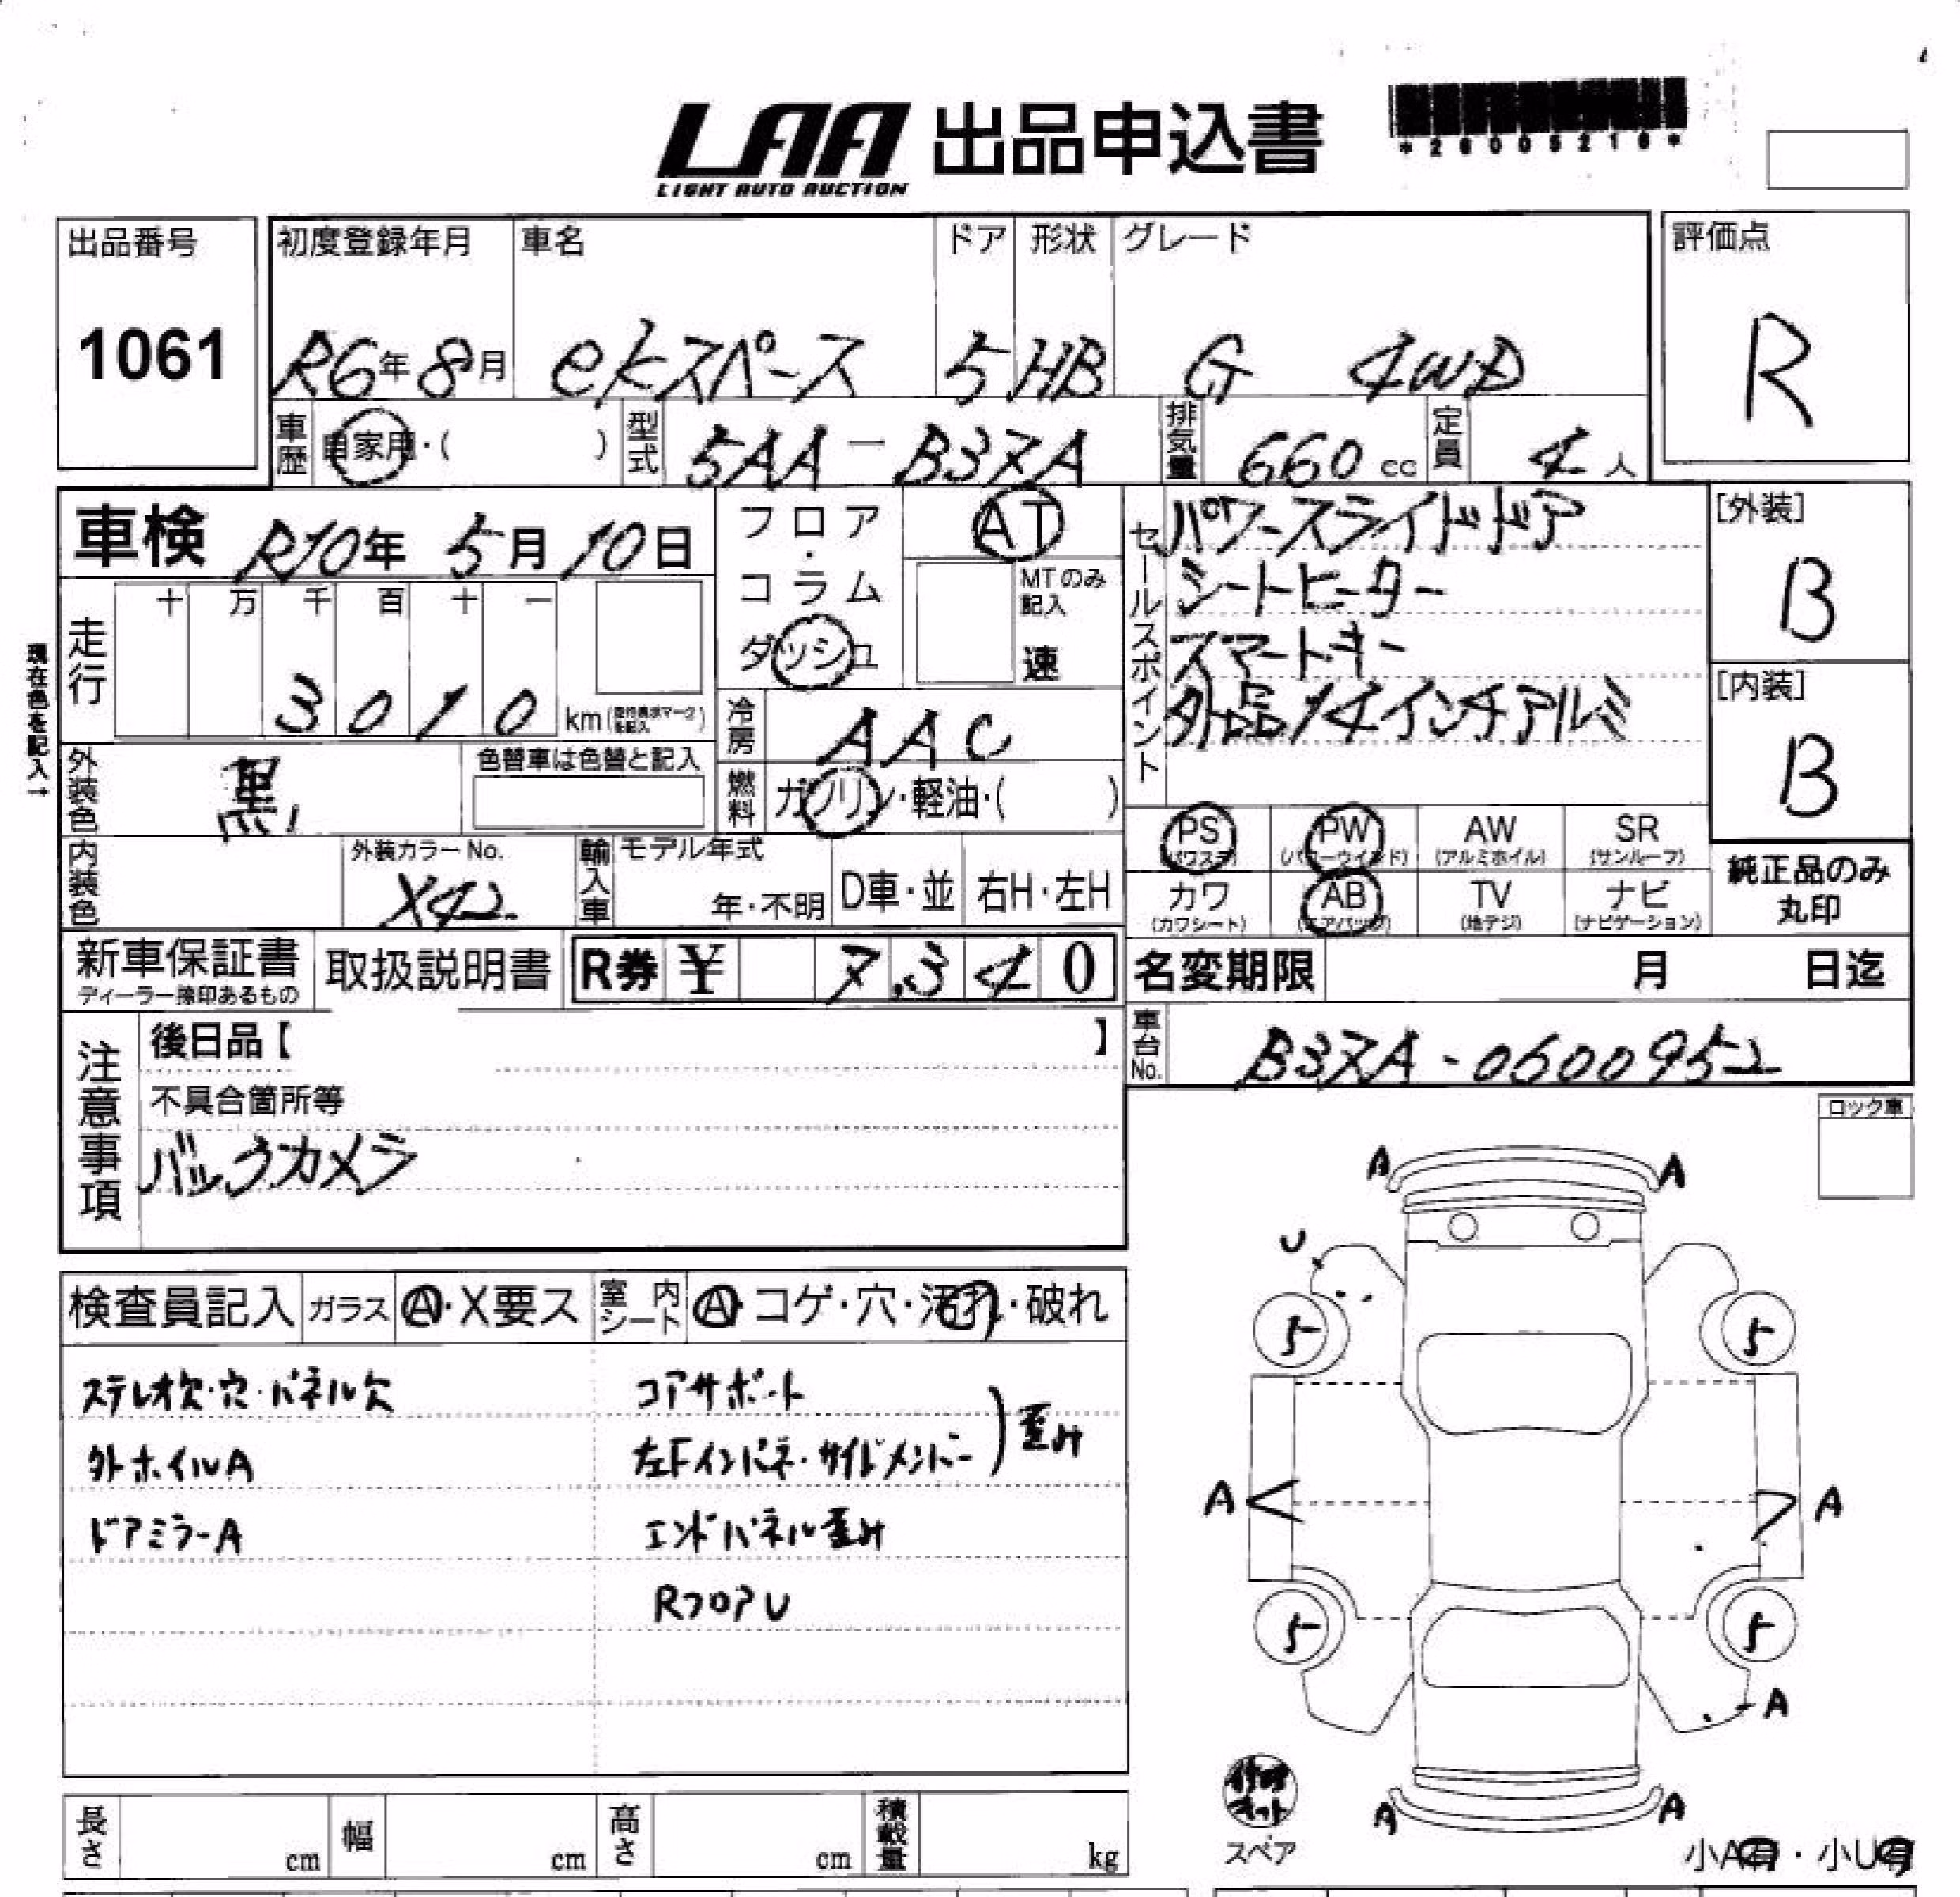 LAA 出品申込書
LIGHT AUTO AUCTION
*26005216*
出品番号
1061
初度登録年月 車名 ドア 形状 グレード
R6年8月 ekスペース 5 HB G 4WD
評価点
R
車歴 自家用・( ) 型式 5AA-B37A 排気量 660cc 定員 4人
車検 R10年 5月10日
フロア・コラム ダッシュ
AT
MTのみ記入
速
セールスポイント
パワースライドドア
シートヒーター
スマートキー
外品14インチアルミ
[外装]
B
[内装]
B
現在色を記入→
走行 十 万 千 百 十 一
3010 km
冷房 AAC
燃料 ガソリン・軽油・( )
外装色 黒 色替車は色替と記入
内装色 外装カラーNo. X42
輸入車 モデル年式 年・不明 D車・並 右H・左H
PS (パワステ) PW (パワーウインド) AW (アルミホイル) SR (サンルーフ)
カワ (カワシート) AB (エアバッグ) TV (地デジ) ナビ (ナビゲーション)
純正品のみ
丸印
新車保証書 取扱説明書 R券 ¥ 7,340
ディーラー捺印あるもの
名変期限 月 日迄
注意事項
後日品【 】
不具合箇所等
バックカメラ
車台No. B37A-0600952
ロック車
検査員記入 ガラス A・X要ス 室内シート A・コゲ・穴・汚れ・破れ
ステレオ欠・穴・パネル欠
外ホイルA
ドアミラーA
コアサポート
左Fインパネ・サイドメンバー
歪み
エンドパネル歪み
RフロアU
A A
U
5 5
A A
5 5
A
A A
修理キット
スペア
小A有・小U有
長さ cm 幅 cm 高さ cm 積載量 kg